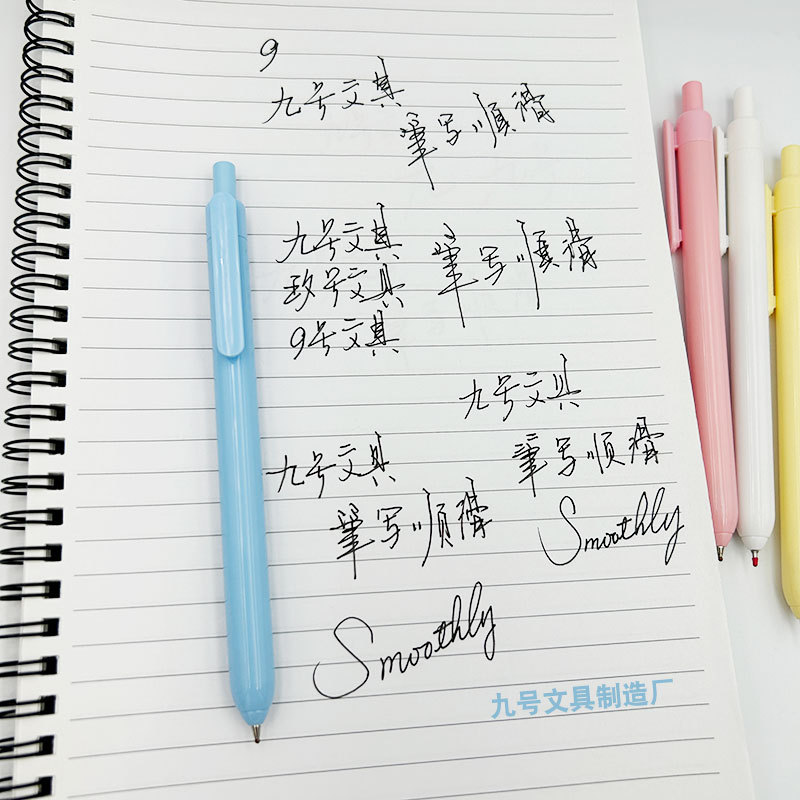 9
九号文具
筆写順滑
九号文具
玖号文具
9号文具
筆写順滑
九号文具
筆写順滑
Smoothly
九号文具
筆写順滑
Smoothly
九号文具制造厂